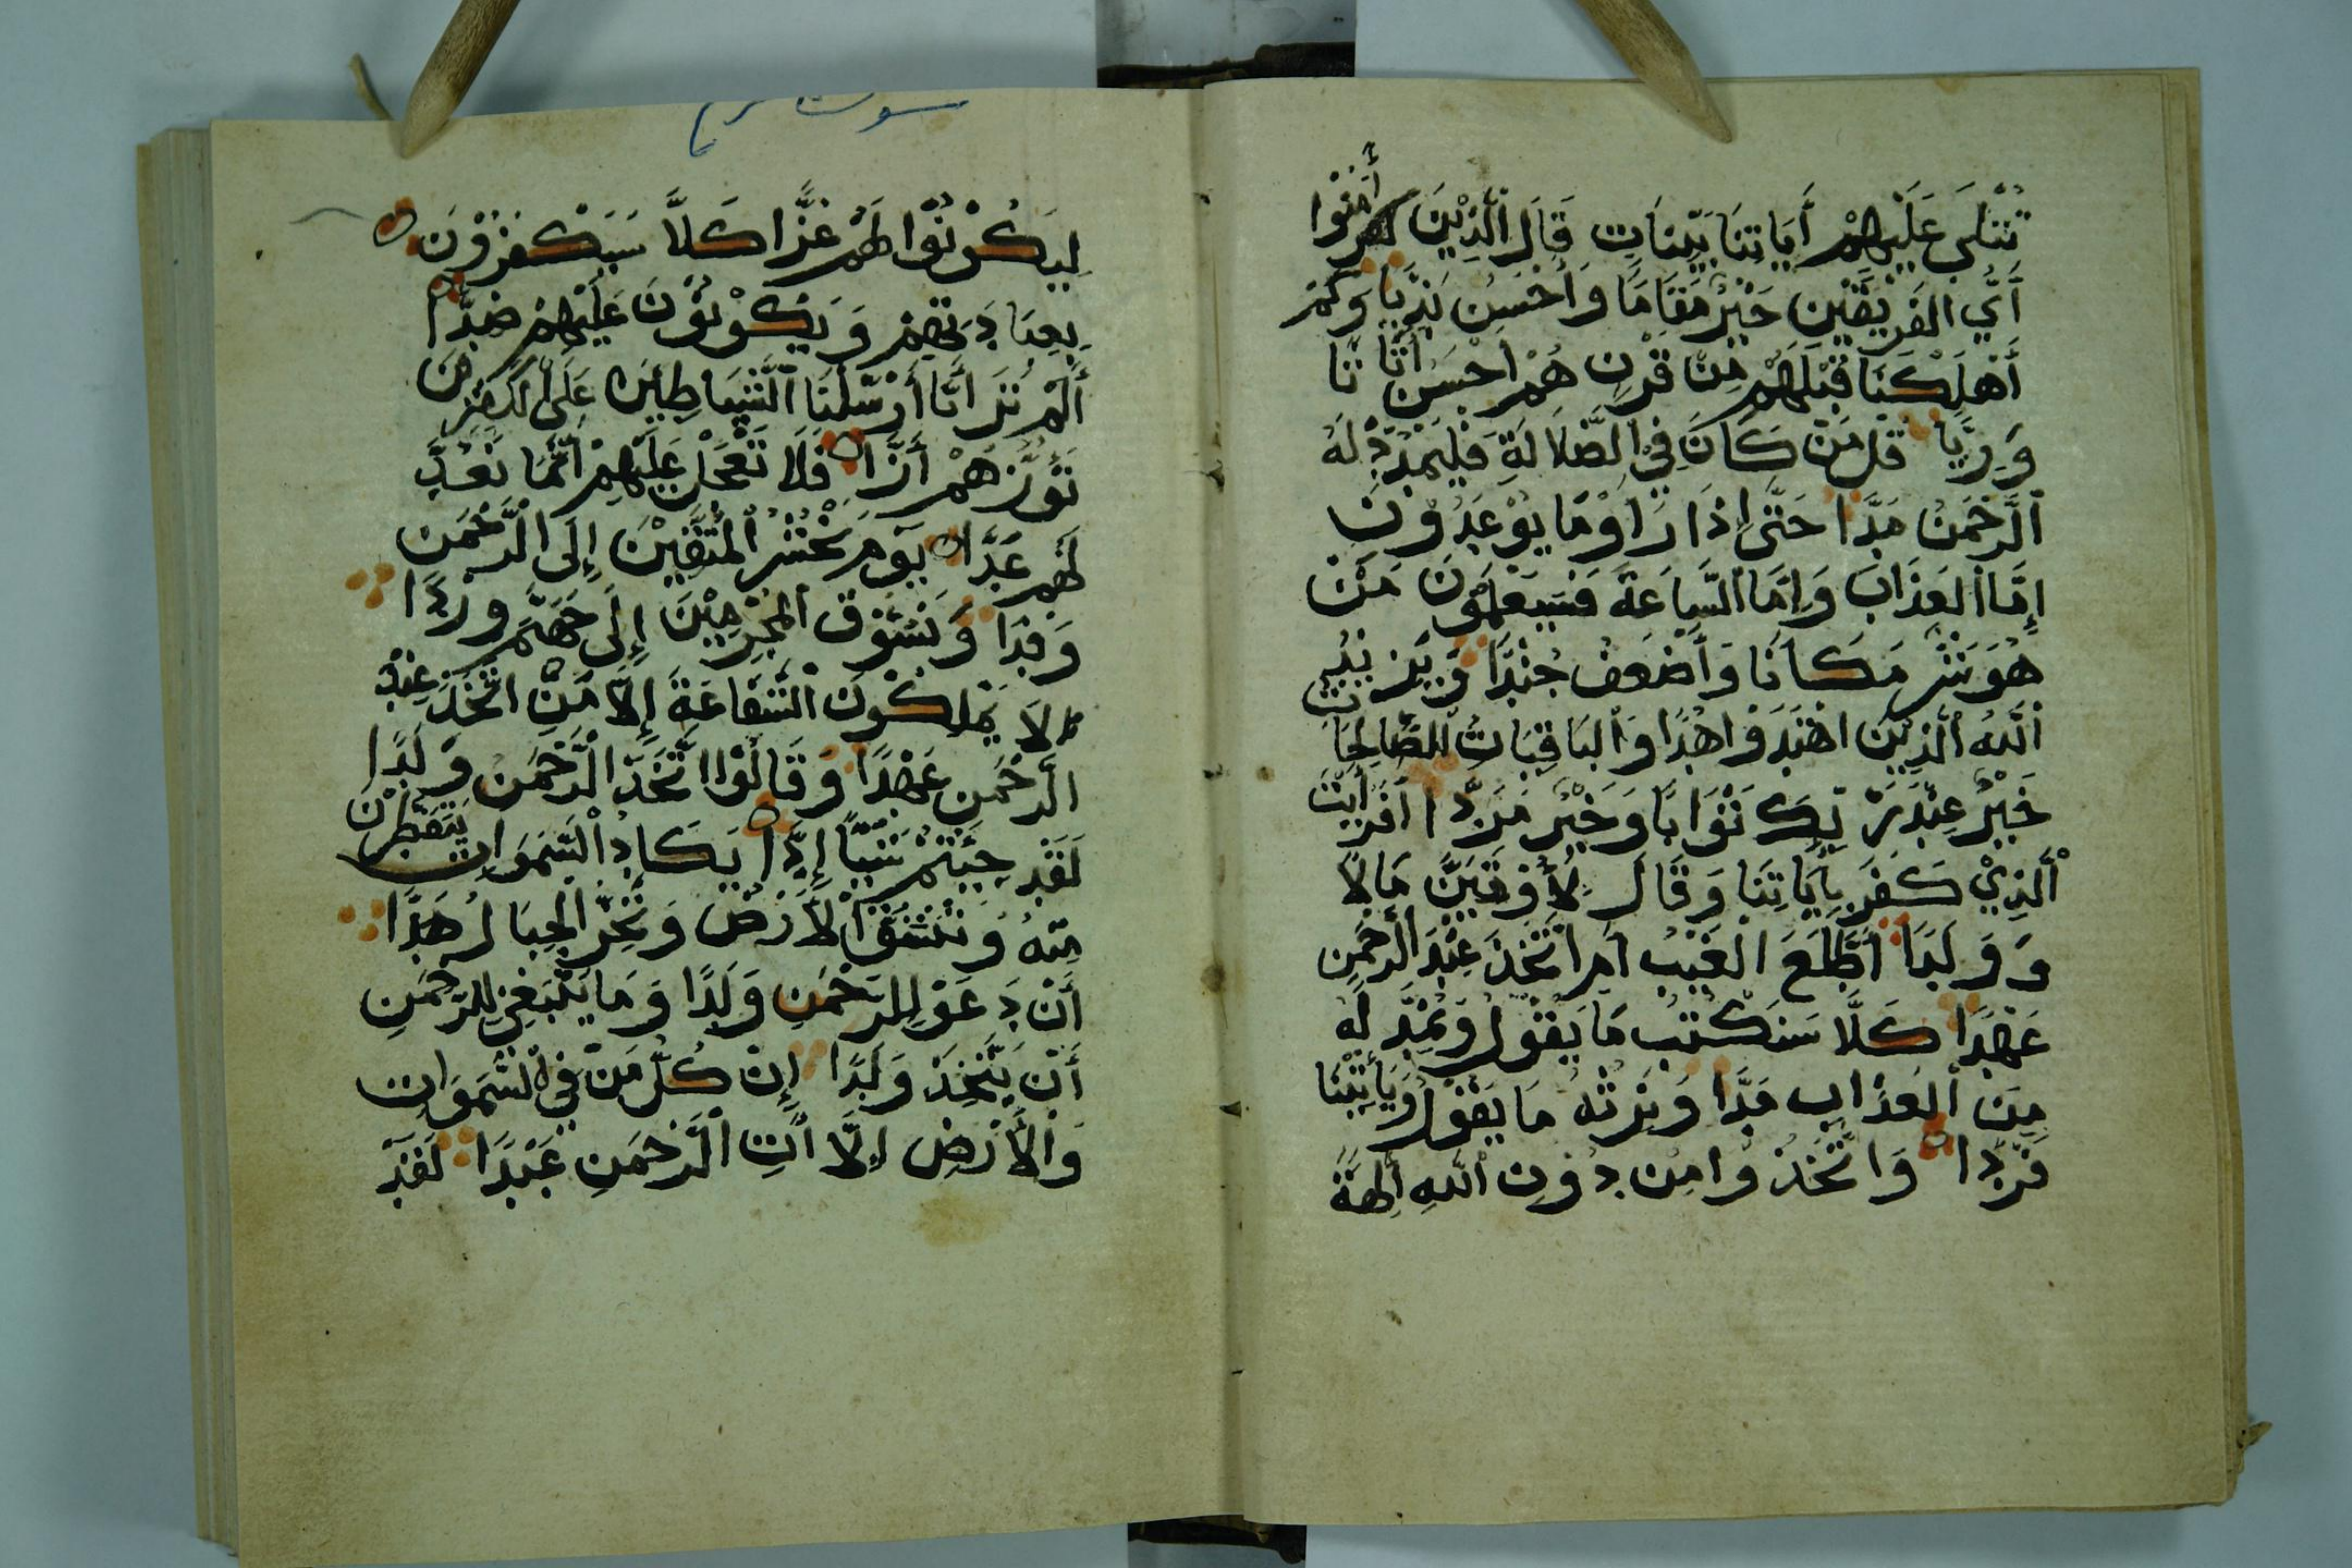 تُتْلَى عَلَيْهِمْ أَيَاتِنَا بَيِّنَاتٍ قَالَ الَّذِيْنَ كفروا أَمَنُوا
أَيُّ الفَرِيْقَيْنِ خَيْرٌ مَقَامًا وَأَحْسَنُ نَدِيًّا وَكَمْ
أَهْلَكْنَا قَبْلَهُمْ مِنْ قَرْنٍ هُمْ أَحْسَنُ أَثَاثًا
وَرِيًا قُل مَنْ كَانَ فِي الضَّلَالَةِ فَلْيَمْدُدْ لَهُ
الرَّحْمَنُ مَدًّا حَتَّى إِذَا رَأَوْ مَا يُوْعَدُوْنَ
إِمَّا العَذَابَ وَإِمَّا السَّاعَةَ فَسَيَعْلَمُوْنَ مَنْ
هُوَ شَرٌّ مَكَانًا وَأَضْعَفُ جُنْدًا وَيَزِيْدُ
اللَّهُ الَّذِيْنَ اهْتَدَوْا هُدًا وَالبَاقِيَاتُ الصَّالِحَاتُ
خَيْرٌ عِنْدَ رَبِّكَ ثَوَابًا وَخَيْرٌ مَرَدًّا أَفَرَأَيْتَ
الَّذِيْ كَفَرَ بِأَيَاتِنَا وَقَالَ لَأُوْتَيَنَّ مَالًا
وَوَلَدًا أَطَّلَعَ الغَيْبَ أَمِ اتَّخَذَ عِنْدَ الرَّحْمَنِ
عَهْدًا كَلَّا سَنَكْتُبُ مَا يَقُوْلُ وَنَمُدُّ لَهُ
مِنَ العَذَابِ مَدًّا وَنَرِثُهُ مَا يَقُوْلُ وَيَأْتِيْنَا
فَرْدًا وَاتَّخَذُوْا مِنْ دُوْنِ اللَّهِ أَلِهَةً
سورت مريم
لِيَكُوْنُوْا لَهُمْ عِزًّا كَلَّا سَيَكْفُرُوْنَ
بِعِبَادَتِهِمْ وَيَكُوْنُوْنَ عَلَيْهِمْ ضِدًّا
أَلَمْ تَرَ أَنَّا أَرْسَلْنَا الشَّيَاطِيْنَ عَلَى الكَفِرِيْنَ
تَؤُزُّهُمْ أَزًّا فَلَا تَعْجَلْ عَلَيْهِمْ إِنَّمَا نَعُدُّ
لَهُمْ عَدًّا يَوْمَ نَحْشُرُ المُتَّقِيْنَ إِلَى الرَّحْمَنِ
وَفْدًا وَنَسُوْقُ المُجْرِمِيْنَ إِلَى جَهَنَّمَ وِرْدًا
لَا يَمْلِكُوْنَ الشَّفَاعَةَ إِلَّا مَنِ اتَّخَذَ عِنْدَ
الرَّحْمَنِ عَهْدًا وَقَالُوْا اتَّخَذَ الرَّحْمَنُ وَلَدًا
لَقَدْ جِئْتُمْ شَيْئًا إِدًّا يَكَادُ السَّمَوَاتُ يَتَفَطَّرْنَ
مِنْهُ وَتَنْشَقُّ الأَرْضُ وَتَخِرُّ الجِبَالُ هَدًّا
أَنْ دَعَوْ لِلرَّحْمَنِ وَلَدًا وَمَا يَنْبَغِيْ لِلرَّحْمَنِ
أَنْ يَتَّخِذَ وَلَدًا إِنْ كُلُّ مَنْ فِي السَّمَوَاتِ
وَالأَرْضِ إِلَّا أَتِ الرَّحْمَنِ عَبْدًا لَقَدْ